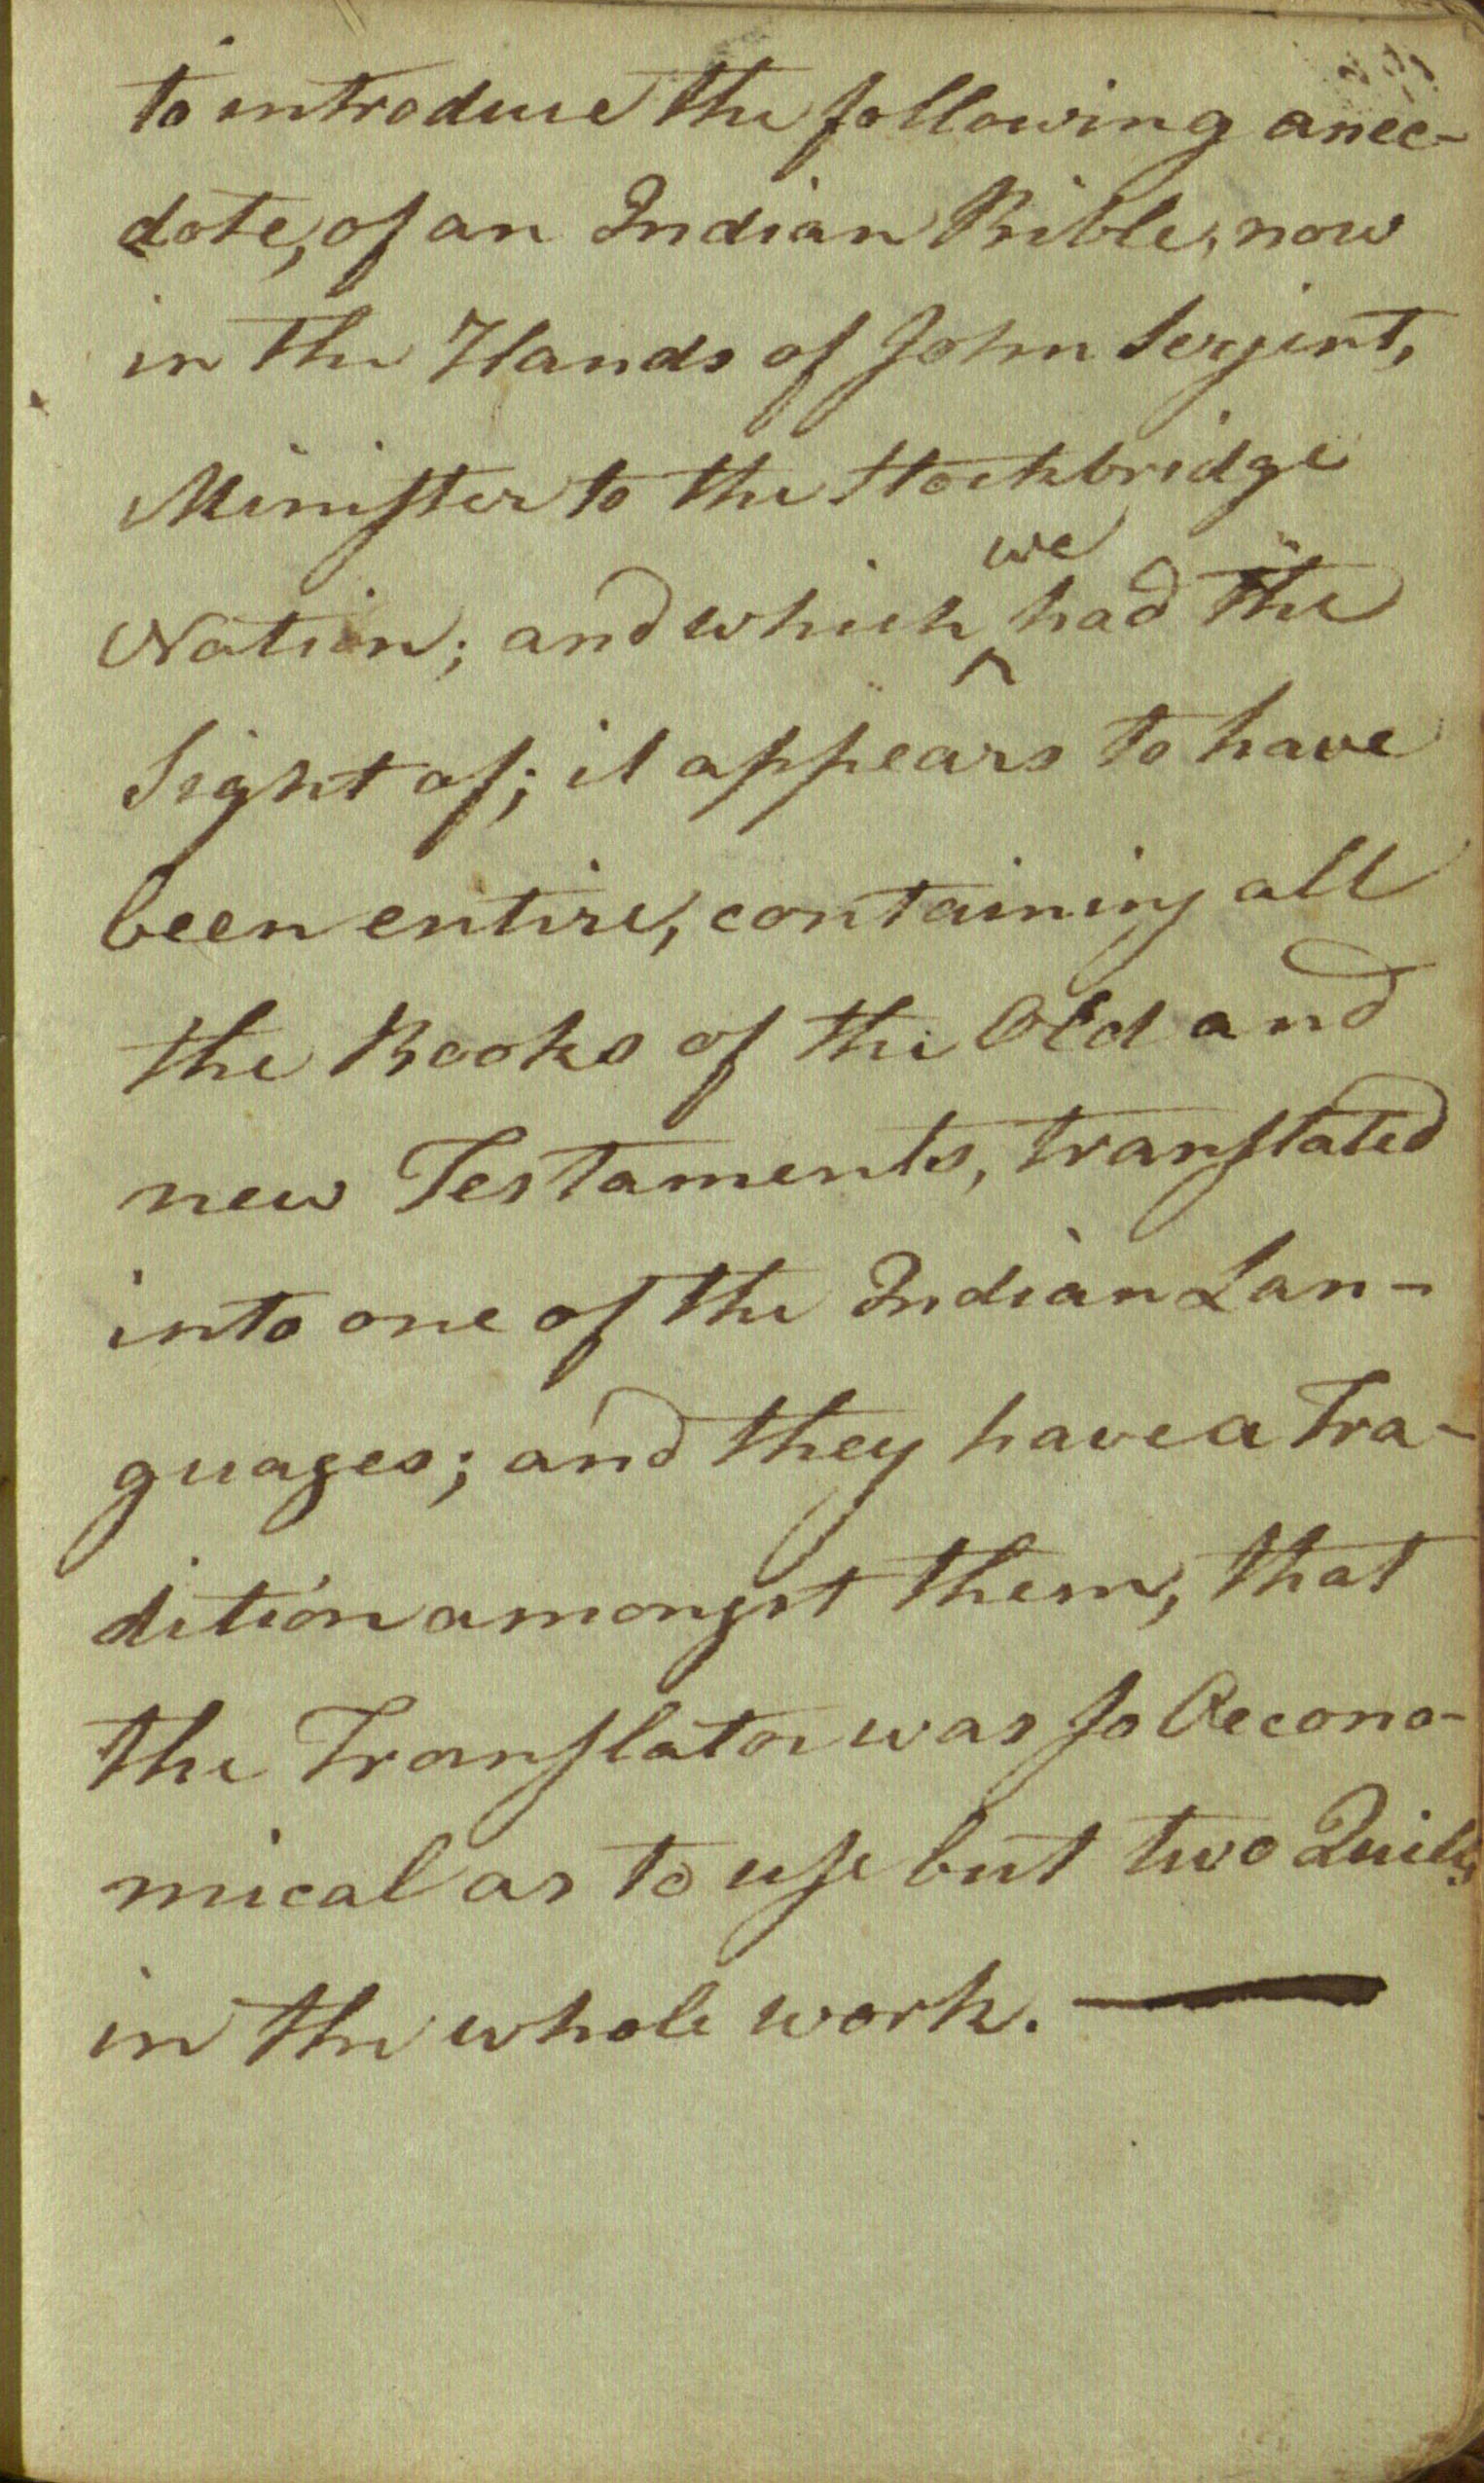 to introduce the following anec-
dote, of an Indian Bible, now
in the Hands of John Serjint,
Minister to the Stockbridge
Nation; and which ^we had the
Sight of; it appears to have
been entire, containing all
the Books of the Old and
new Testaments, translated
into one of the Indian Lan-
guages; and they have a Tra-
dition amongst them, that
the Translator was so Oecono-
mical as to use but two Quills
in the whole work. —